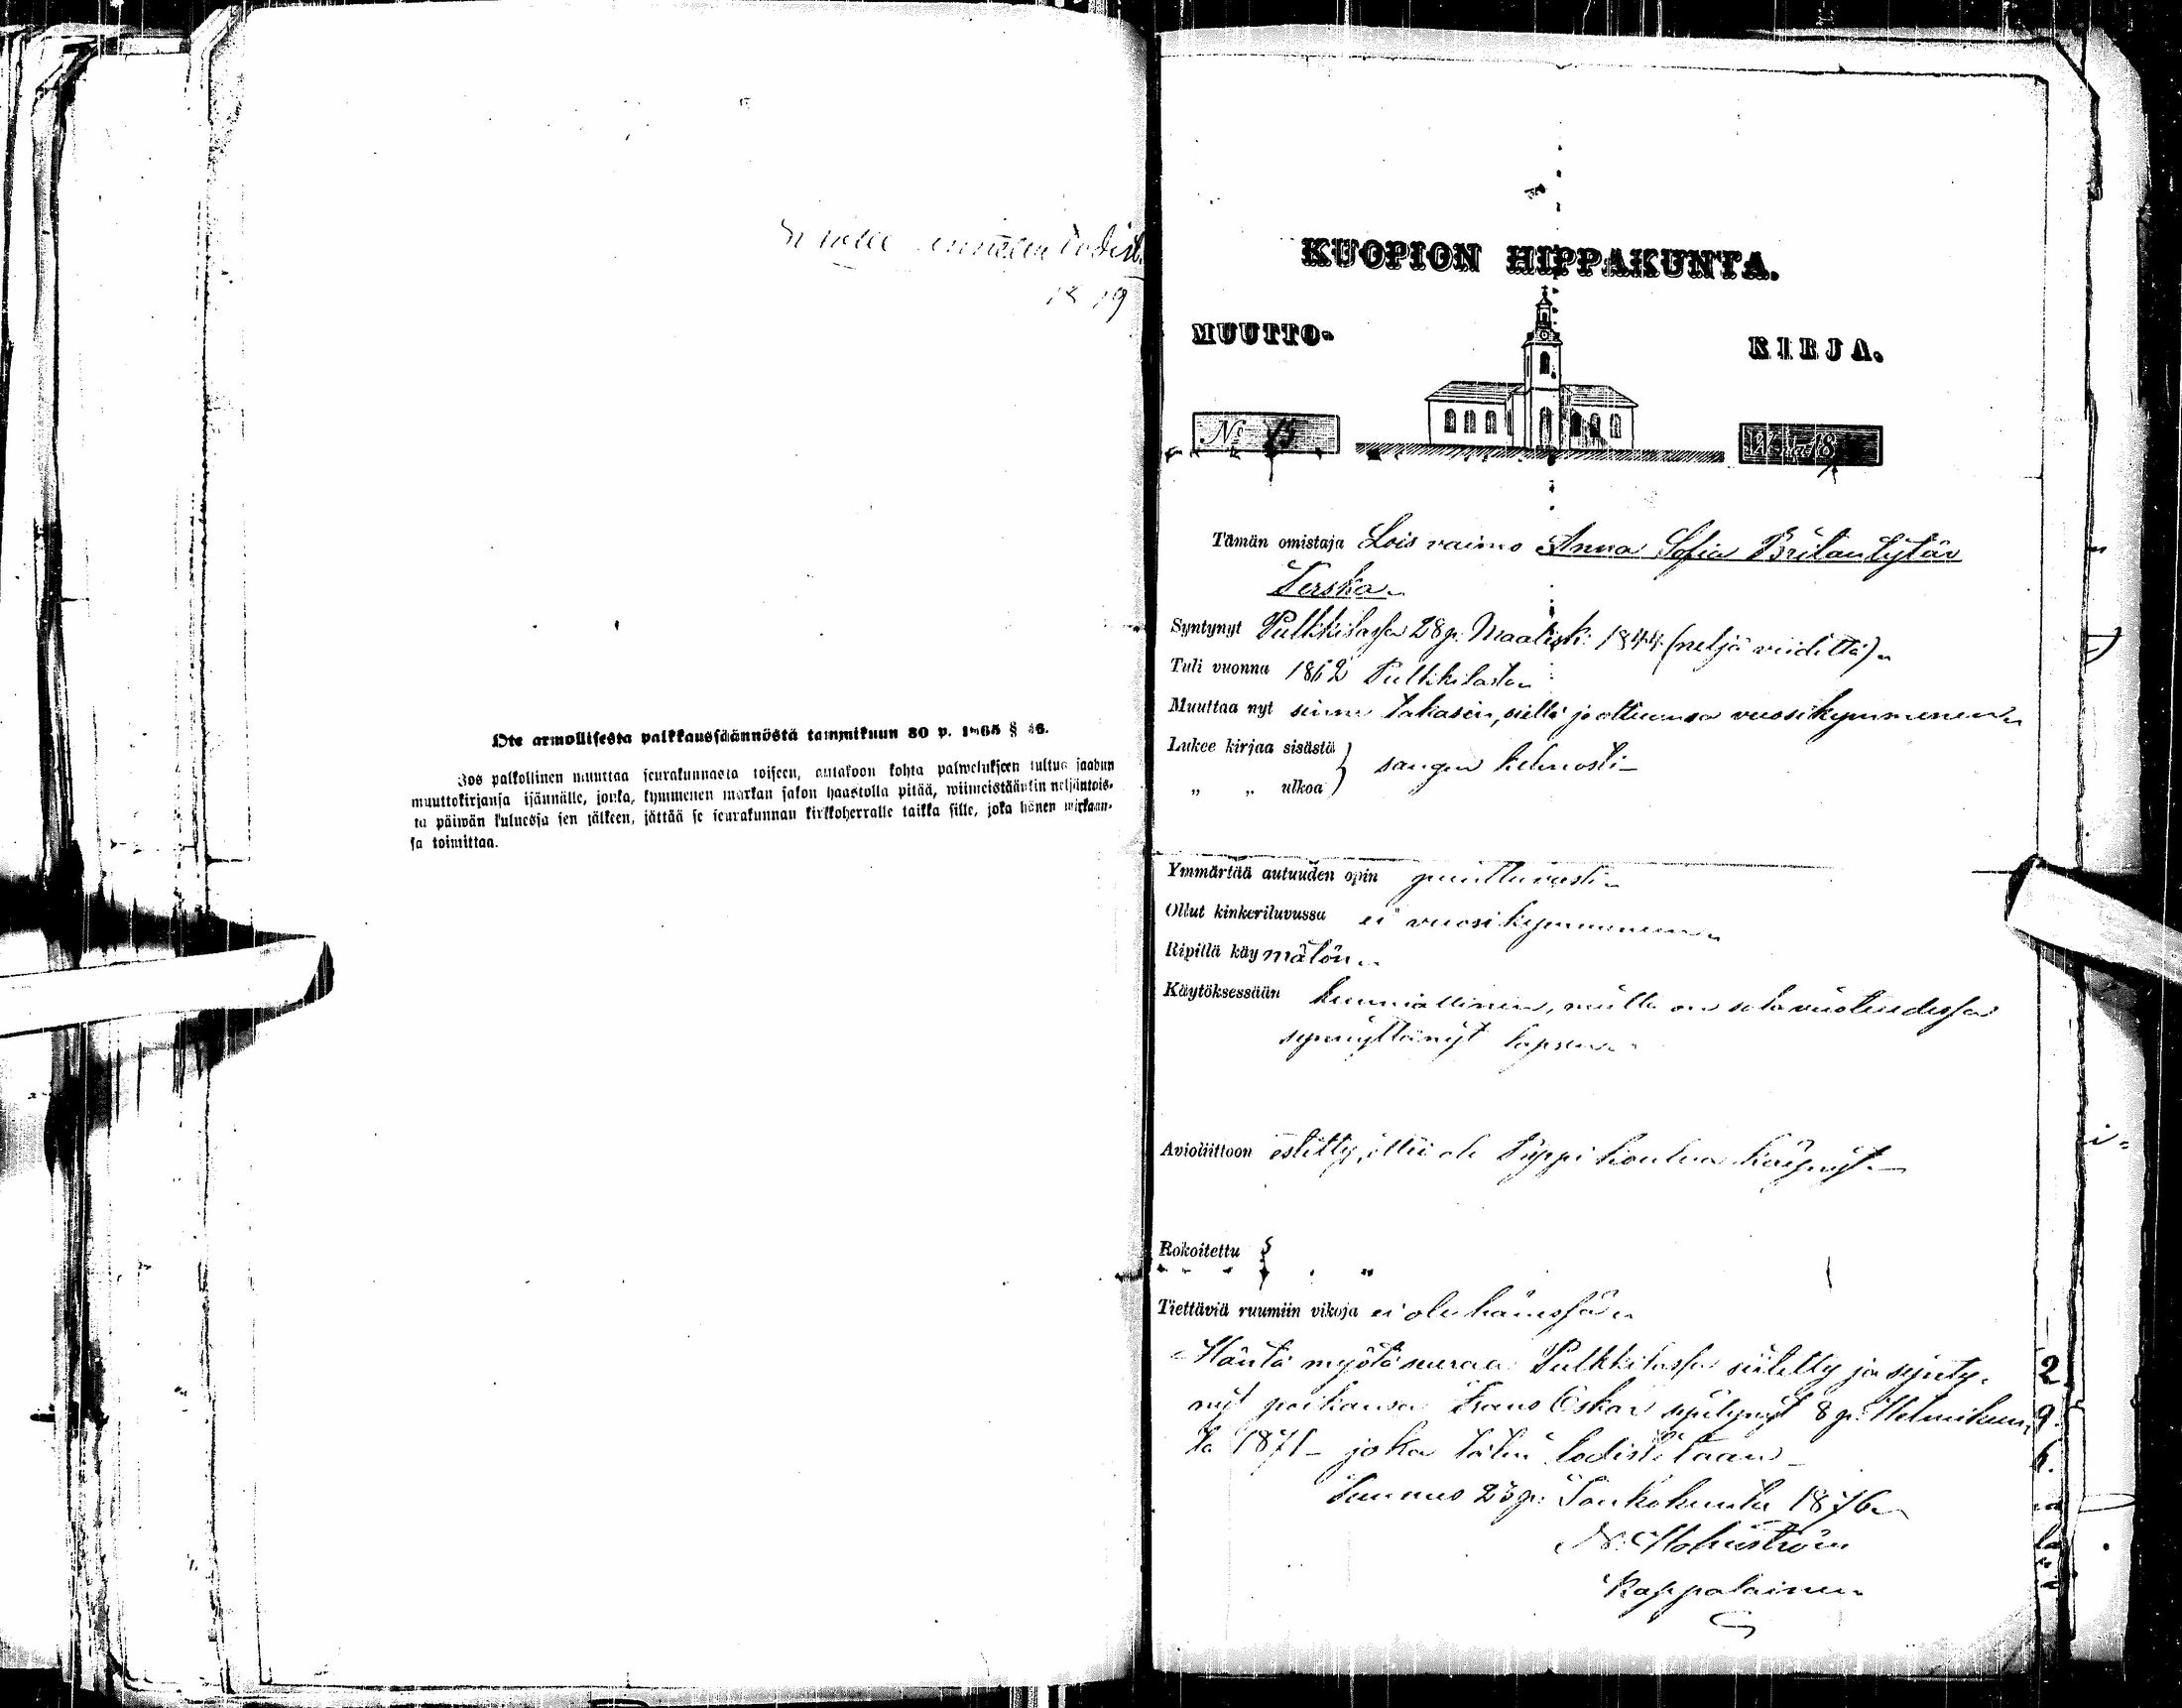 Ote armollisesta palkkaussäännöstä tammikuun 30 p. 1865 § 46.
Jos palkollinen muuttaa seurakunnasta toiseen, antakoon kohta palwelukseen tultua saadun
muuttokirjansa isännälle, jonka, kymmenen markan sakon haastolla pitää, wiimeistäänkin neljäntois-
ta päiwän kuluessa sen jälkeen, jättää se seurakunnan kirkkoherralle taikka sille, joka hänen wirkaan-
sa toimittaa.
KUOPION HIPPAKUNTA.
MUUTTO- KIRJA.
No 15 18
Tämän omistaja Lois vaimo Anna Sofia Britantytär
Terska
Syntynyt Pulkkilassa 28 p. Maalisk. 1844 (neljä viidettä)
Tuli vuonna 1862 Pulkkilasta
Muuttaa nyt sinne takasin, siellä jo oltuansa vuosikymmenen
Lukee kirjaa sisästä } sangen kehnosti
„ „ ulkoa
Ymmärtää autuuden opin puuttuvasti
Ollut kinkeriluvussa ei vuosikymmeneen
Ripillä käymätön
Käytöksessään kunniallinen, mutta on salavuoteudessa
synnyttänyt lapsen
Avioliittoon estetty, ettei ole Rippikoulua käynyt
Rokoitettu
Tiettäviä ruumiin vikoja ei ole hänessä
Häntä myötä seuraa Pulkkilassa siitetty ja synty-
nyt poikansa Frans Oskar syntynyt 8 p. Helmikuu-
ta 1871 - joka täten todistetaan
23 p. Toukokuuta 1876
N. Holmström
Kappalainen